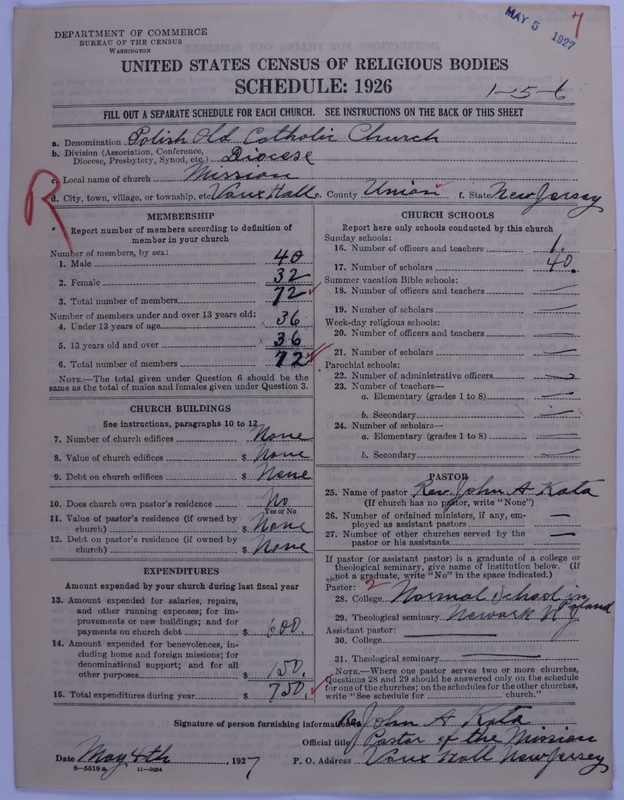 DEPARTMENT OF COMMERCE
BUREAU OF THE CENSUS
WASHINGTON
MAY 5 1927
7
UNITED STATES CENSUS OF RELIGIOUS BODIES
SCHEDULE: 1926
1-5-6
FILL OUT A SEPARATE SCHEDULE FOR EACH CHURCH. SEE INSTRUCTIONS ON THE BACK OF THIS SHEET
a. Denomination Polish Old Catholic Church
b. Division (Association, Conference,
Diocese, Presbytery, Synod, etc.) Diocese
c. Local name of church Mission
d. City, town, village, or township, etc. Vaux Hall e. County Union f. State New Jersey
R
MEMBERSHIP
Report number of members according to definition of
member in your church
Number of members, by sex:
1. Male 40
2. Female 32
3. Total number of members 72
Number of members under and over 13 years old:
4. Under 13 years of age 36
5. 13 years old and over 36
6. Total number of members 72
NOTE.—The total given under Question 6 should be the
same as the total of males and females given under Question 3.
CHURCH BUILDINGS
See instructions, paragraphs 10 to 12
7. Number of church edifices None
8. Value of church edifices $ None
9. Debt on church edifices $ None
10. Does church own pastor's residence No
Yes or No
11. Value of pastor's residence (if owned by
church) $ None
12. Debt on pastor's residence (if owned by
church) $ None
EXPENDITURES
Amount expended by your church during last fiscal year
13. Amount expended for salaries, repairs,
and other running expenses; for im-
provements or new buildings; and for
payments on church debt $ 600.
14. Amount expended for benevolences, in-
cluding home and foreign missions; for
denominational support; and for all
other purposes $ 150.
15. Total expenditures during year $ 750.
CHURCH SCHOOLS
Report here only schools conducted by this church
Sunday schools:
16. Number of officers and teachers 1.
17. Number of scholars 40.
Summer vacation Bible schools:
18. Number of officers and teachers —
19. Number of scholars —
Week-day religious schools:
20. Number of officers and teachers —
21. Number of scholars —
Parochial schools:
22. Number of administrative officers —
23. Number of teachers—
a. Elementary (grades 1 to 8) —
b. Secondary —
24. Number of scholars—
a. Elementary (grades 1 to 8) —
b. Secondary —
PASTOR
25. Name of pastor Rev. John A Kata
(If church has no pastor, write "None")
26. Number of ordained ministers, if any, em-
ployed as assistant pastors —
27. Number of other churches served by the
pastor or his assistants —
If pastor (or assistant pastor) is a graduate of a college or
theological seminary, give name of institution below. (If
not a graduate, write "No" in the space indicated.)
Pastor: 2
28. College Normal School in
29. Theological seminary Newark N J
Assistant pastor:
30. College
31. Theological seminary
NOTE.—Where one pastor serves two or more churches,
questions 28 and 29 should be answered only on the schedule
for one of the churches; on the schedules for the other churches,
write "See schedule for church."
Signature of person furnishing information Rev John A Kata
Official title Pastor of the Mission
Date May 4th, 1927 P. O. Address Vaux Hall New Jersey
8—5518a 11—9084